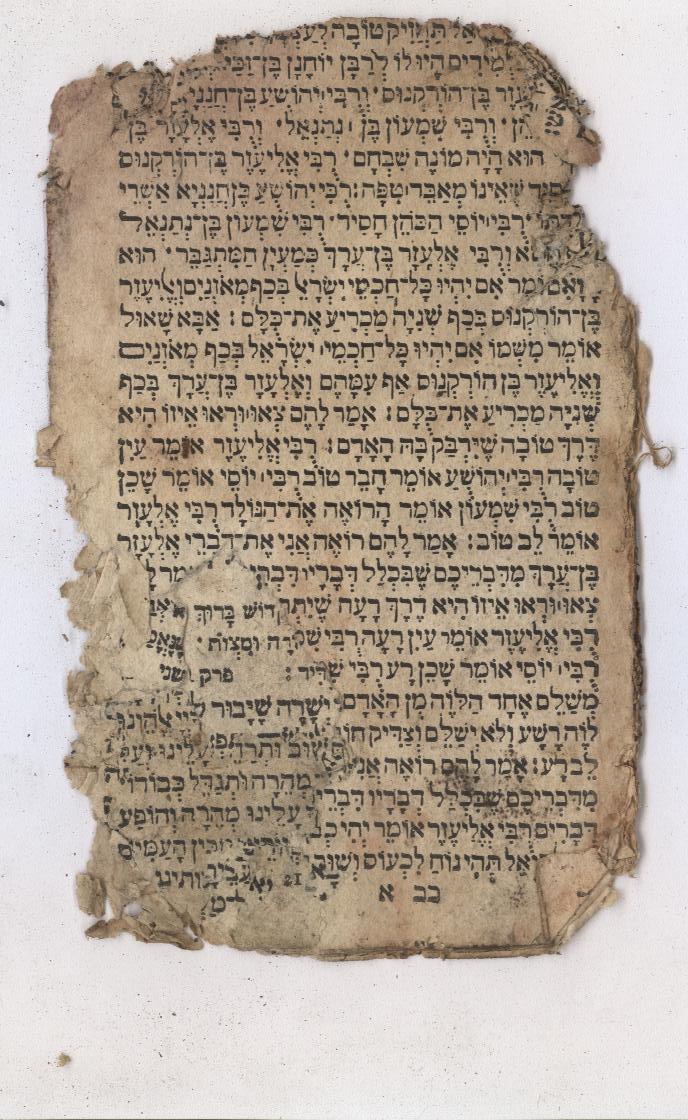 אַל תַּחֲזִיק טוֹבָה לְעַצְ
הָיוּ לוֹ לְרַבָּן יוֹחָנָן בֶּן־זַכַּי
בֶּן־הוֹרְקְנוֹס׳ וְרַבִּי יְהוֹשֻׁעַ בֶּן־חֲנַנְיָ
וְרַבִּי שִׁמְעוֹן בֶּן נְתַנְאֵל׳ וְרַבִּי אֶלְעָזָר בֶּן
הוּא הָיָה מוֹנֶה שִׁבְחָם׳ רַבִּי אֱלִיעֶזֶר בֶּן־הוֹרְקְנוֹס
שֶׁאֵינוֹ מְאַבֵּד טִפָּה: רַבִּי יְהוֹשֻׁעַ בֶּן חֲנַנְיָא אַשְׁרֵי
רַבִּי יוֹסֵי הַכֹּהֵן חָסִיד׳ רַבִּי שִׁמְעוֹן בֶּן־נְתַנְאֵל
וְרַבִּי אֶלְעָזָר בֶּן־עֲרָךְ כְּמַעְיָן הַמִּתְגַּבֵּר׳ הוּא
אִם יִהְיוּ כָּל־חַכְמֵי יִשְׂרָאֵל בְּכַף מֹאזְנַיִם וֶאֱלִיעֶזֶר
בֶּן־הוֹרְקְנוֹס בְּכַף שְׁנִיָּה מַכְרִיעַ אֶת־כֻּלָּם: אַבָּא שָׁאוּל
אוֹמֵר מִשְּׁמוֹ אִם יִהְיוּ כָּל־חַכְמֵי יִשְׂרָאֵל בְּכַף מֹאזְנַיִם
וֶאֱלִיעֶזֶר בֶּן הוֹרְקְנוֹס אַף עִמָּהֶם וְאֶלְעָזָר בֶּן־עֲרָךְ בְּכַף
שְׁנִיָּה מַכְרִיעַ אֶת־כֻּלָּם: אָמַר לָהֶם צְאוּ וּרְאוּ אֵיזוֹ הִיא
דֶּרֶךְ טוֹבָה שֶׁיִּדְבַּק בָּהּ הָאָדָם: רַבִּי אֱלִיעֶזֶר אוֹמֵר עַיִן
טוֹבָה רַבִּי יְהוֹשֻׁעַ אוֹמֵר חָבֵר טוֹב רַבִּי יוֹסֵי אוֹמֵר שָׁכֵן
טוֹב רַבִּי שִׁמְעוֹן אוֹמֵר הָרוֹאֶה אֶת־הַנּוֹלָד רַבִּי אֶלְעָזָר
אוֹמֵר לֵב טוֹב: אָמַר לָהֶם רוֹאֶה אֲנִי אֶת־דִּבְרֵי אֶלְעָזָר
בֶּן־עֲרָךְ מִדִּבְרֵיכֶם שֶׁבִּכְלַל דְּבָרָיו
צְאוּ וּרְאוּ אֵיזוֹ הִיא דֶּרֶךְ רָעָה
רַבִּי אֱלִיעֶזֶר אוֹמֵר עַיִן רָעָה רַבִּי
רַבִּי יוֹסֵי אוֹמֵר שָׁכֵן רָע רַבִּי
מְשַׁלֵּם אֶחָד הַלֹּוֶה מִן הָאָדָם
לֹוֶה רָשָׁע וְלֹא יְשַׁלֵּם וְצַדִּיק
לֵב רָע: אָמַר לָהֶם רוֹאֶה אֲנִי
מִדִּבְרֵיכֶם שֶׁבִּכְלַל דְּבָרָיו דִּבְרֵי
דְּבָרִים רַבִּי אֱלִיעֶזֶר אוֹמֵר יְהִי
וְאַל תְּהִי נוֹחַ לִכְעוֹס וְשׁוּב
כב א
קדוֹשׁ בָּרוּךְ
וּמִצְוֹת׳
פרק שני
יְשָׁרָה שֶׁיָּבוּר
עָלֵינוּ
מְהֵרָה וְתִגְדַּל כְּבוֹדוֹ
עָלֵינוּ מְהֵרָה וְהוֹפַע
הָעַמִּים
21